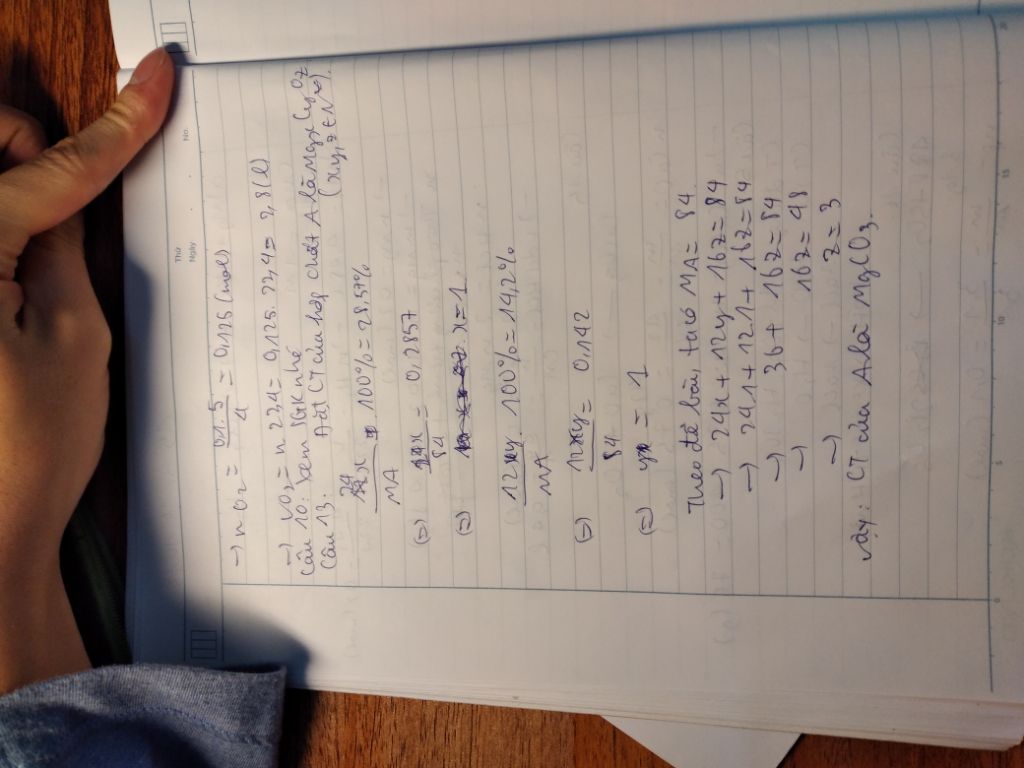 Thứ
Ngày
No.
→ nO₂ = 0,1.5/4 = 0,125 (mol)
→ VO₂ = n.22,4 = 0,125.22,4 = 2,8 (l)
Câu 10: Xem SGK nhé
Câu 13. Đặt CT của hợp chất A là MgxCyOz
(x,y,z ∈ N*).
24x/MA . 100% = 28,57%
(=) 24x/84 = 0,2857
(=) x = 1
12y/MA . 100% = 14,2%
(=) 12y/84 = 0,142
(=) y = 1
Theo đề bài, ta có MA = 84
→ 24x + 12y + 16z = 84
→ 24.1 + 12.1 + 16z = 84
→ 36 + 16z = 84
→ 16z = 48
→ z = 3
Vậy: CT của A là MgCO₃.
0 5 10 15